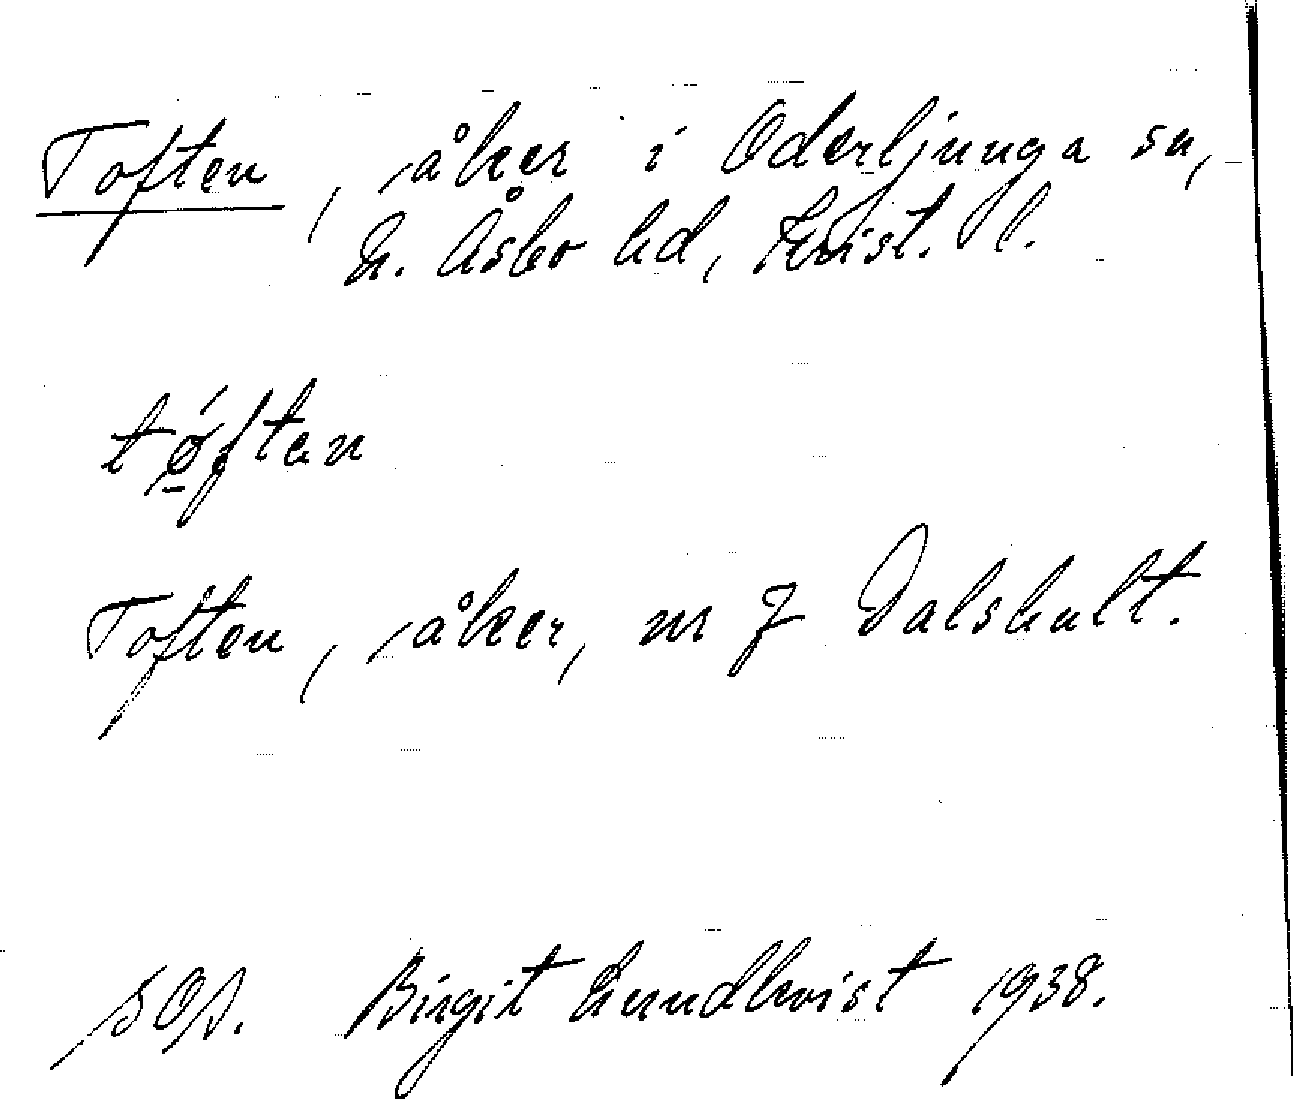 Toften, åker i Oderljunga sn,
N. Åsbo hd, Krist. l.
tøften
Toften, åker, nr 7 Dalshult.
Birgit Lundkvist 1938.